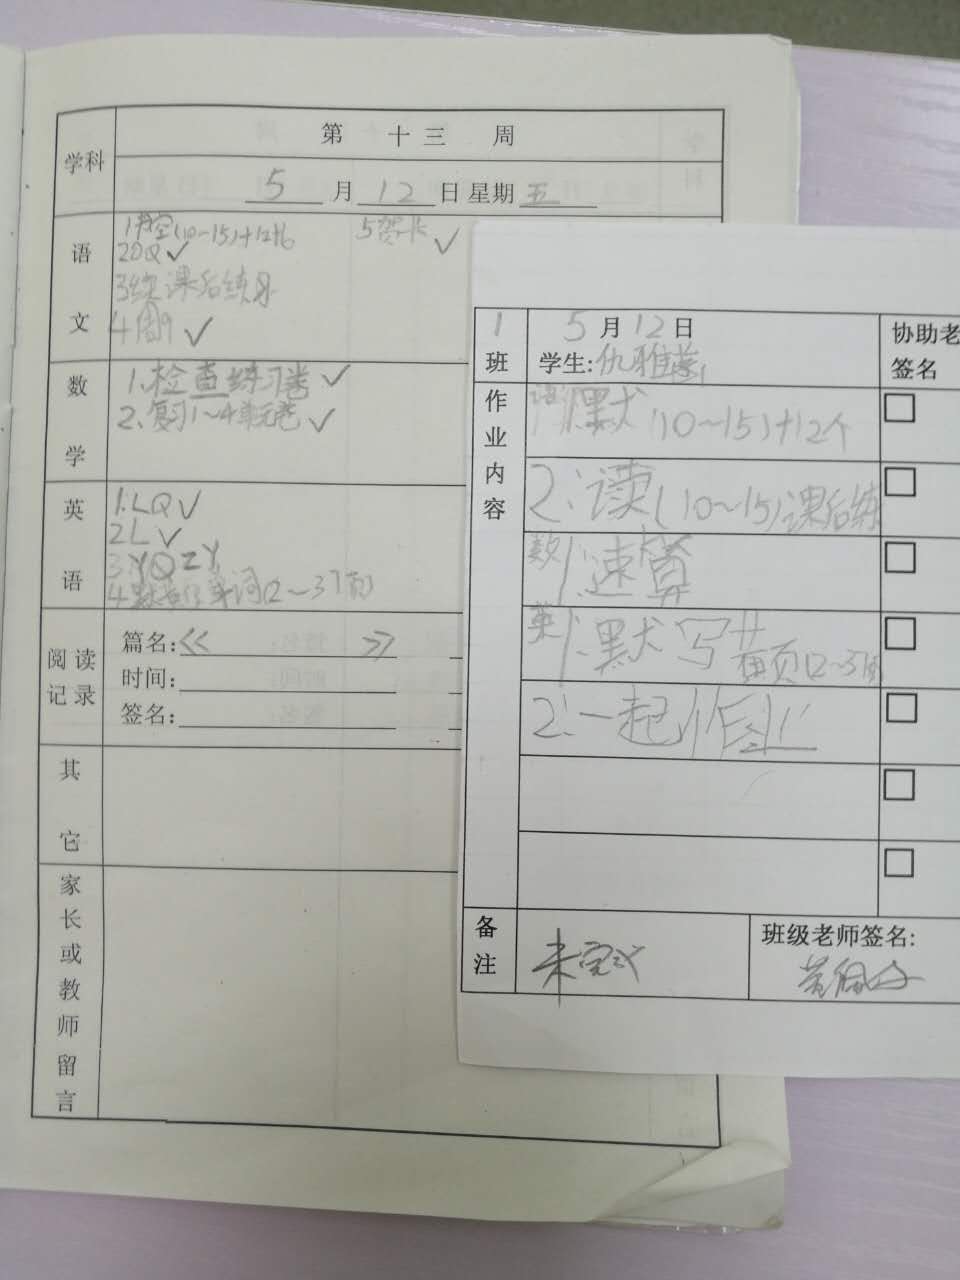 学科
第 十三 周
5 月 12 日 星期 五
语文
(10~15)+12个
5贺卡 ✓
2DQ ✓
课后练习
4周9 ✓
数学
1.检查练习卷 ✓
2.复习1~4单元卷 ✓
英语
1.LQ ✓
2L ✓
3YQZY
单词(2~3页)
阅读记录
篇名:《 》
时间:
签名:
其它
家长或教师留言
1班
5 月 12 日
学生:仇雅
协助老
签名
作业内容
语 1.默(10~15)+12个
2.读(10~15)课后练
数 1.速算
英 1.默写 页(2~3周
2.一起作业
备注
未完成
班级老师签名: